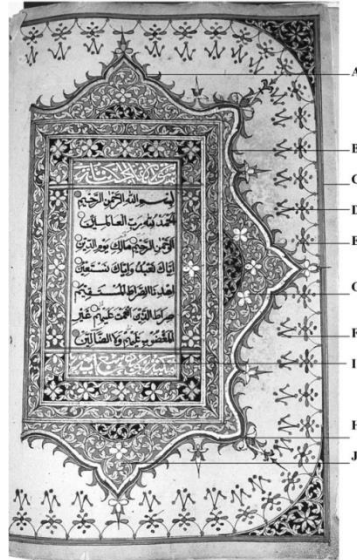 A
بسم الله الرحمن الرحيم
B
C
الحمد لله رب العالمين
D
الرحمن الرحيم مالك يوم الدين
E
اياك نعبد واياك نستعين
اهدنا الصراط المستقيم
G
صراط الذين انعمت عليهم غير
F
المغضوب عليهم ولا الضالين
I
H
J